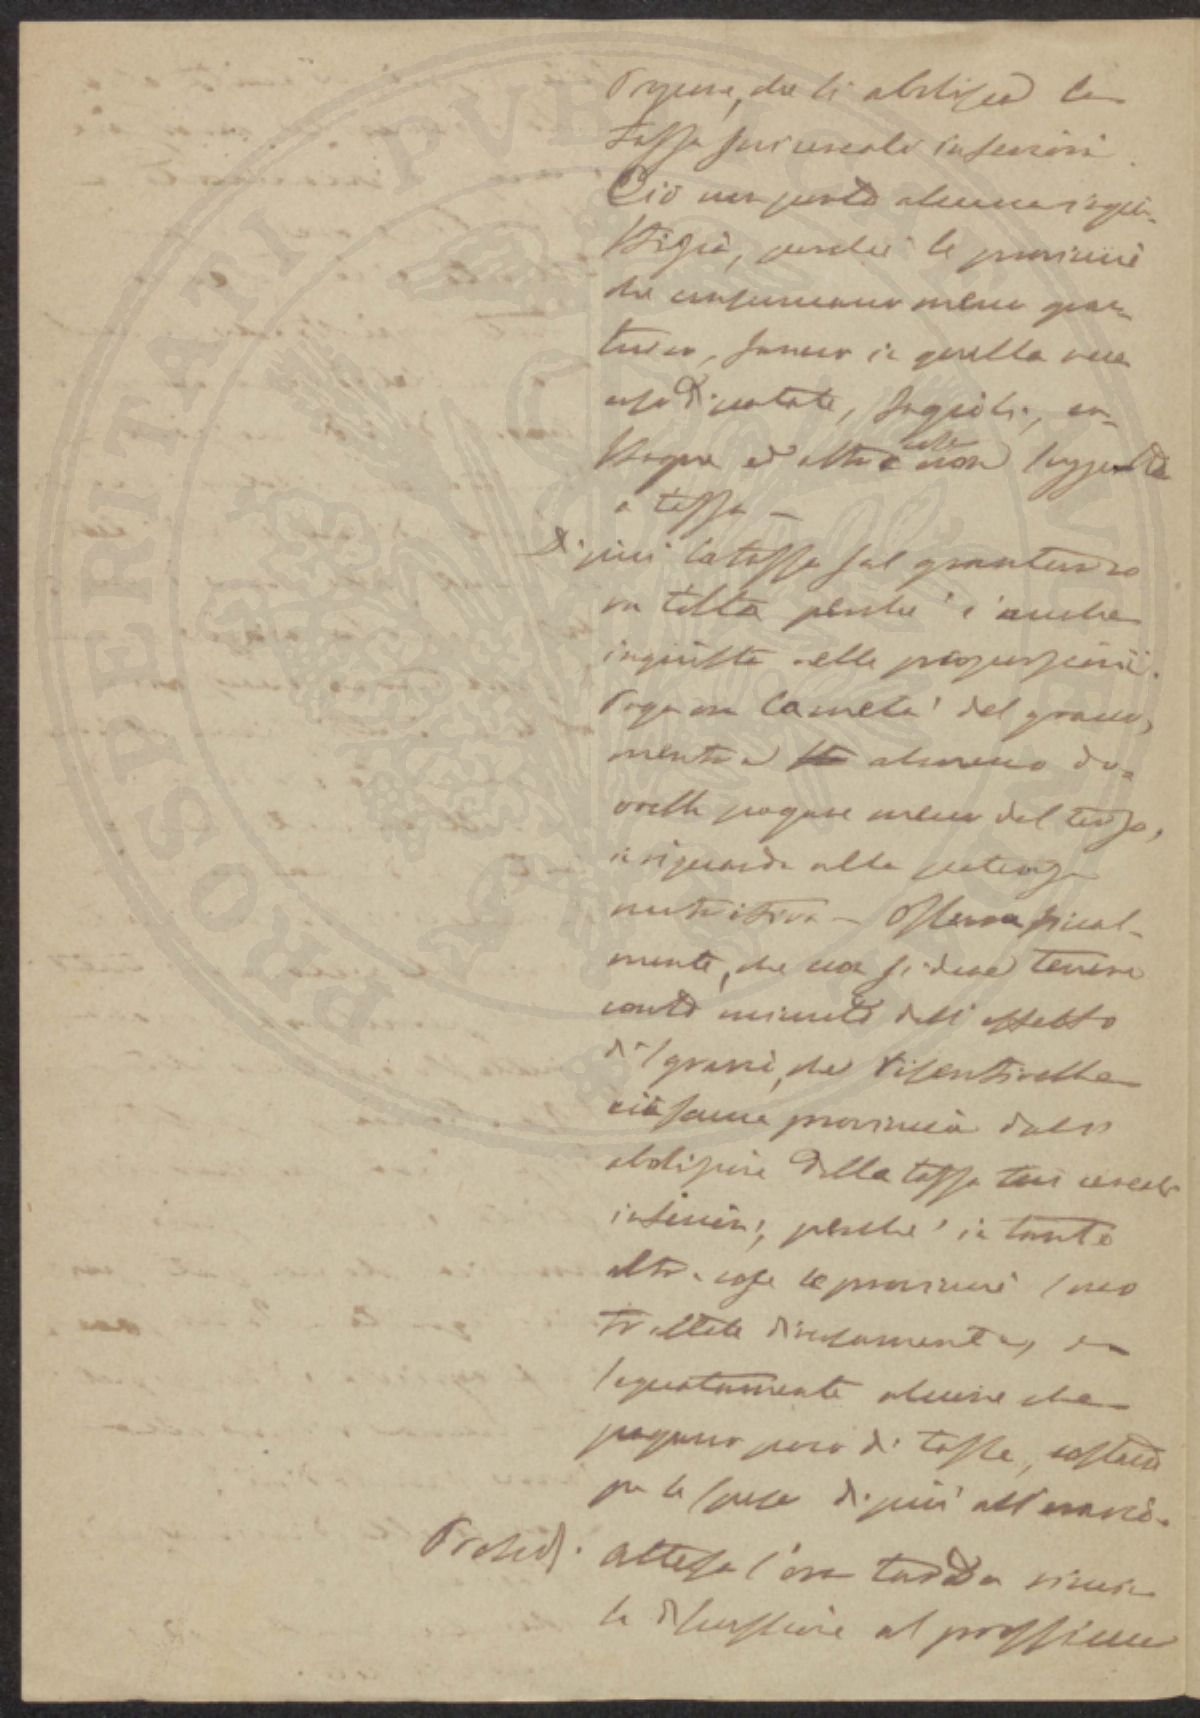 Propone, che si abolisca la
tassa sui cereali inferiori.
Ciò non porta alcuna ingiu-
stizia, perchè le provincie
che consumano meno gran-
turco, fanno in quella vece
uso di patate, fagioli, ca-
stagne ed altre cose non soggette
a tassa —
Di più la tassa sul granturco
va tolta perchè è anche
ingiusta nelle proporzioni.
Paga ora la metà del grano,
mentre almeno do-
vrebbe pagare meno del terzo,
in riguardo alla potenza
nutritiva — Osserva final-
mente, che non si deve tenere
conto minuto dell'effetto
di sgravi, che risentirebbe
ciascuna provincia dall'
abolizione della tassa sui cereali
inferiori, perchè in tante
altre cose le provincie sono
trattate diversamente, e
segnatamente alcune che
pagano poco di tasse, costano
per le spese di più all'erario.
Presid. Attesa l'ora tarda rinvia
la discussione al prossimo
PROSPERITATI PUBLICAE